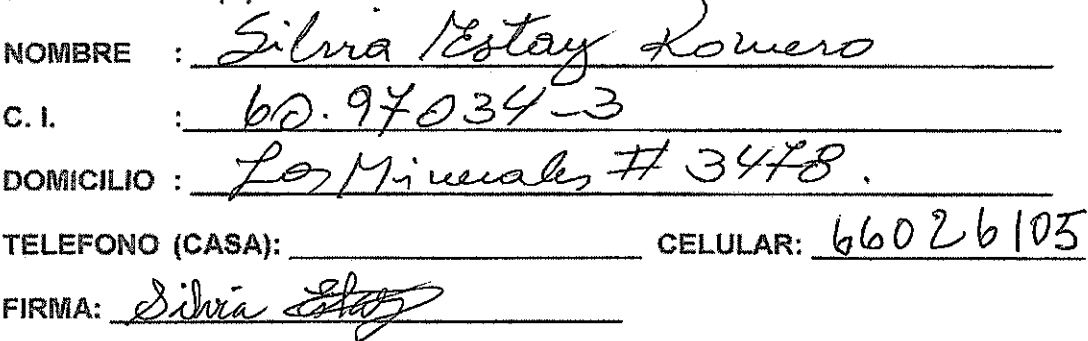 NOMBRE : Silvia Estay Romero
C. I. : 60.97034-3
DOMICILIO : Los Minerales # 3478.
TELEFONO (CASA): CELULAR: 66026105
FIRMA: Silvia Estay